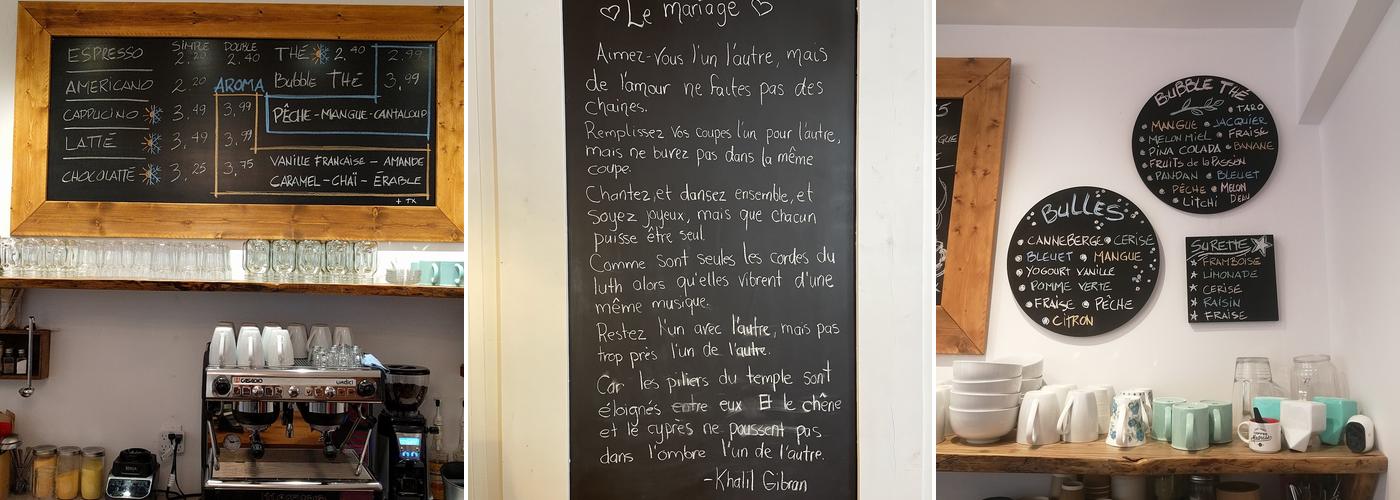 SIMPLE DOUBLE
ESPRESSO 2.20 2.40
AMERICANO 2.20 AROMA
CAPPUCINO 3,49 3,99
LATTÉ 3,49 3,99
CHOCOLATTÉ 3,25 3,75
THÉ 2,40 2.99
Bubble THÉ 3,99
PÊCHE - MANGUE - CANTALOUP
VANILLE FRANCAISE - AMANDE
CARAMEL - CHAÏ - ÉRABLE
+ TX
CASADIO undici
Le mariage
Aimez-vous l'un l'autre, mais
de l'amour ne faites pas des
chaines.
Remplissez vos coupes l'un pour l'autre,
mais ne buvez pas dans la même
coupe.
Chantez, et dansez ensemble, et
soyez joyeux, mais que chacun
puisse être seul.
Comme sont seules les cordes du
luth alors qu'elles vibrent d'une
même musique.
Restez l'un avec l'autre, mais pas
trop près l'un de l'autre.
Car les piliers du temple sont
éloignés entre eux Et le chêne
et le cyprès ne poussent pas
dans l'ombre l'un de l'autre.
-Khalil Gibran
BUBBLE THÉ
TARO
MANGUE JACQUIER
MELON MIEL FRAISE
PINA COLADA BANANE
FRUITS de la PASSION
PANDAN BLEUET
PÊCHE MELON D'EAU
LITCHI
BULLES
CANNEBERGE CERISE
BLEUET MANGUE
YOGOURT VANILLE
POMME VERTE
FRAISE PÊCHE
CITRON
SURETTE
FRAMBOISE
LIMONADE
CERISE
RAISIN
FRAISE